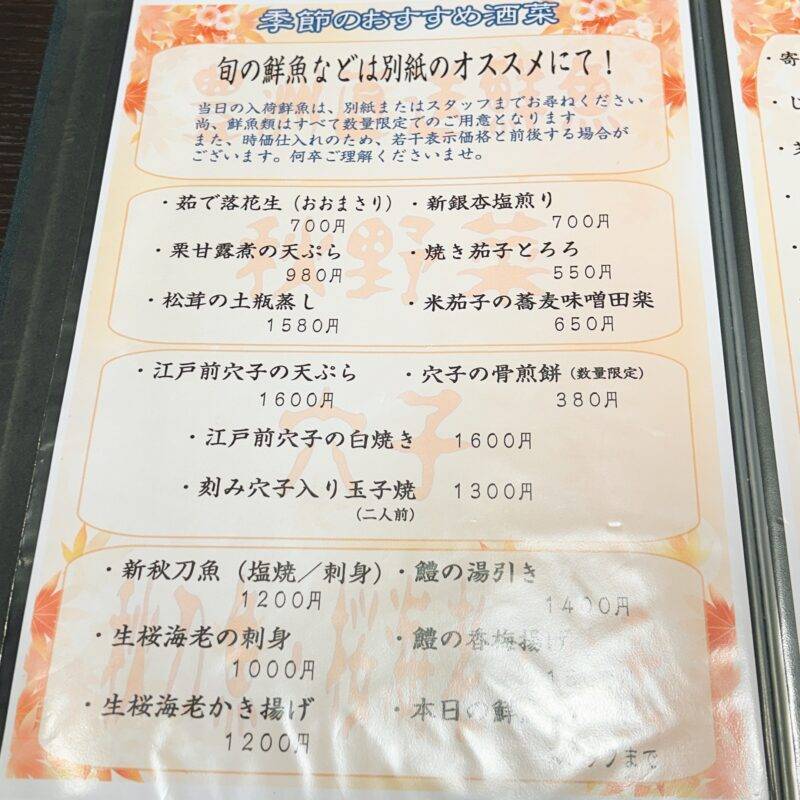 季節のおすすめ酒菜
旬の鮮魚などは別紙のオススメにて！
当日の入荷鮮魚は、別紙またはスタッフまでお尋ねください
尚、鮮魚類はすべて数量限定でのご用意となります
また、時価仕入れのため、若干表示価格と前後する場合が
ございます。何卒ご理解くださいませ。
秋野菜
・茹で落花生（おおまさり）
700円
・新銀杏塩煎り
700円
・栗甘露煮の天ぷら
980円
・焼き茄子とろろ
550円
・松茸の土瓶蒸し
1580円
・米茄子の蕎麦味噌田楽
650円
穴子
・江戸前穴子の天ぷら
1600円
・穴子の骨煎餅（数量限定）
380円
・江戸前穴子の白焼き 1600円
・刻み穴子入り玉子焼 1300円
（二人前）
・新秋刀魚（塩焼／刺身）
1200円
・鱧の湯引き
1400円
・生桜海老の刺身
1000円
・鱧の香梅揚げ
・生桜海老かき揚げ
1200円
・本日の鮮
まで